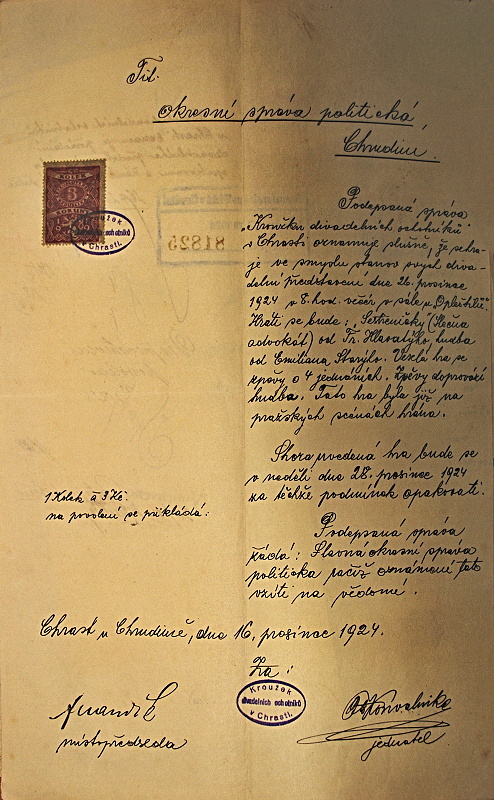 Tit.
okresní správa politická
Chrudim.
KOLEK
KORUN
Kroužek
divadelních ochotníků
v Chrasti.
81825
Podepsaná správa
"Kroužku divadelních ochotníků"
v Chrasti oznamuje slušně, že sehra-
je ve smyslu stanov svých diva-
delní představení dne 26. prosince
1924 v 8. hod. večer v sále u "Opleštilů".
Hráti se bude: "Sestřeničky" (Slečna
advokát) od Fr. Hlavatýho, hudba
od Emiliana Starýho. Veselá hra se
zpěvy o 4 jednáních. Zpěvy doprovází
hudba. Tato hra byla již na
pražských scénách hrána.
Shora uvedená hra bude se
v neděli dne 28. prosince 1924
za těchže podmínek opakovati.
1 Kolek á 3 Kč.
na povolení se přikládá.
Podepsaná správa
žádá: Slavná okresní správa
politická račiž oznámení toto
vzíti na vědomí.
Chrast u Chrudimě, dne 16. prosince 1924.
Za:
Kroužek
divadelních ochotníků
v Chrasti.
místopředseda
jednatel